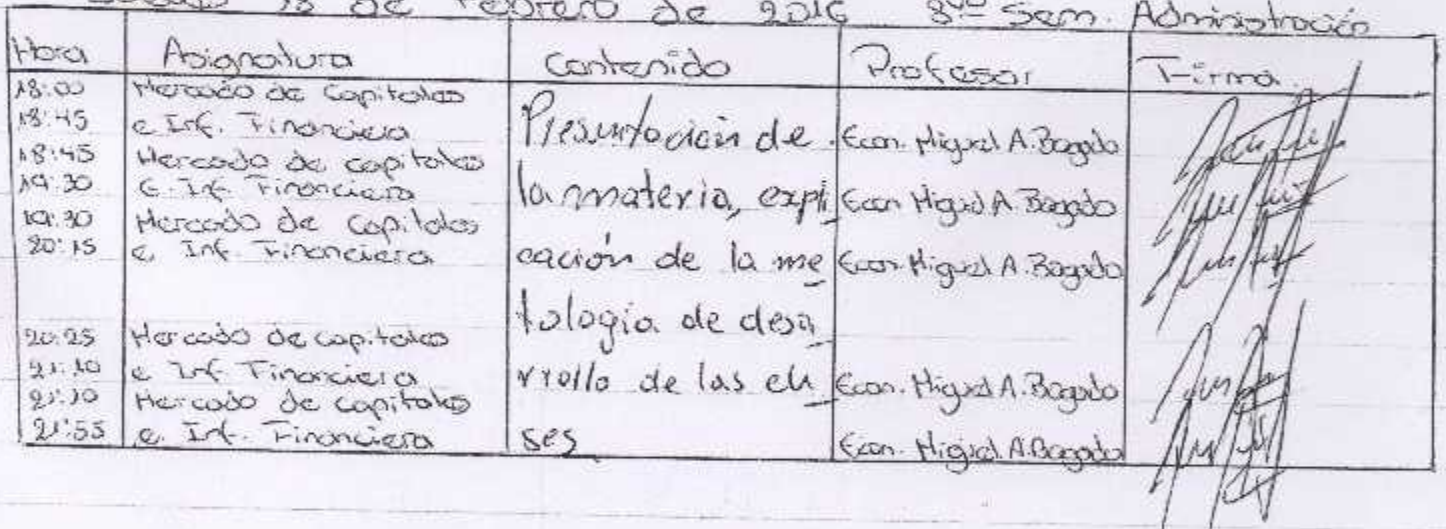 de Febrero de 2016 8vo Sem. Administración
Hora Asignatura Contenido Profesor Firma.
18:00 Mercado de Capitales
18:45 e Inf. Financiera Presentación de Econ. Miguel A. Bogado
18:45 Mercado de capitales
19:30 e. Inf. Financiera la materia, expli Econ Miguel A. Bogado
19:30 Mercado de Capitales
20:15 e. Inf. Financiera cación de la me Econ. Miguel A. Bogado
tología de desa
20:25 Mercado de capitales
21:10 e Inf. Financiera rrollo de las cla Econ. Miguel A. Bogado
21:10 Mercado de capitales
21:55 e. Inf. Financiera ses Econ. Miguel A. Bogado